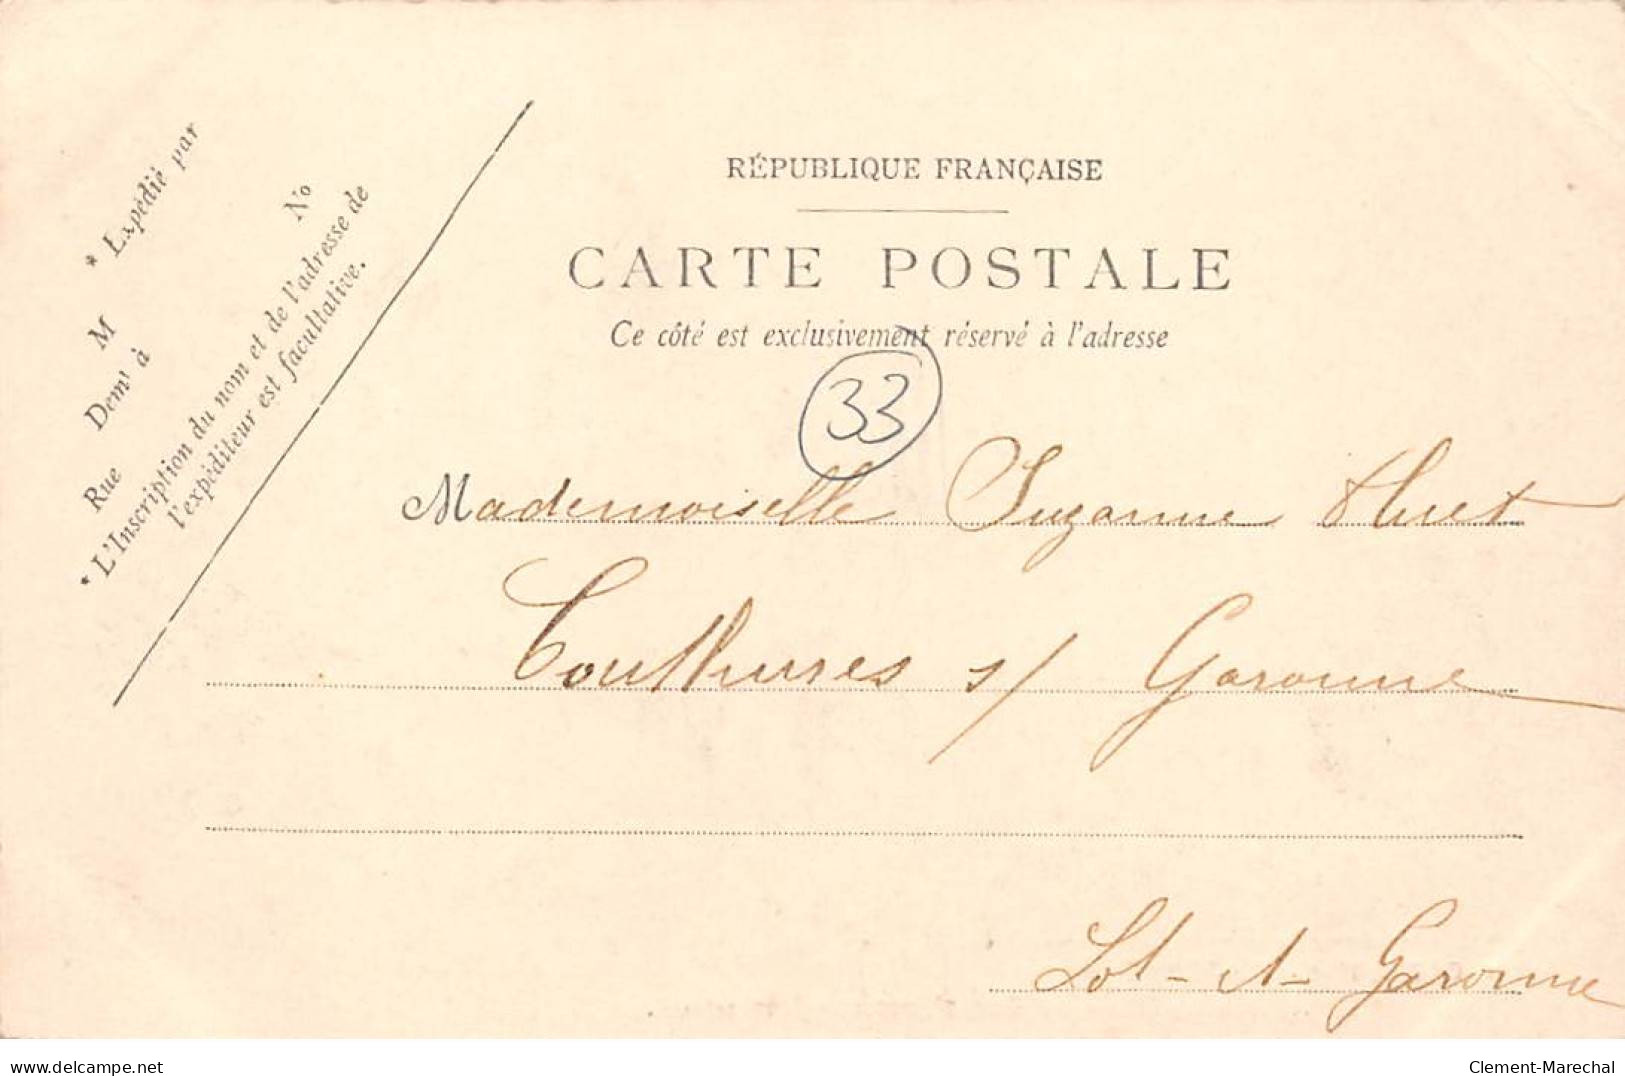 * Expédié par
M
Demt à
Rue
No
* L'Inscription du nom et de l'adresse de
l'expéditeur est facultative.
RÉPUBLIQUE FRANÇAISE
CARTE POSTALE
Ce côté est exclusivement réservé à l'adresse
33
Mademoiselle Suzanne Huet
Couthures s/ Garonne
Lot-et-Garonne
www.delcampe.net
Clement-Marechal